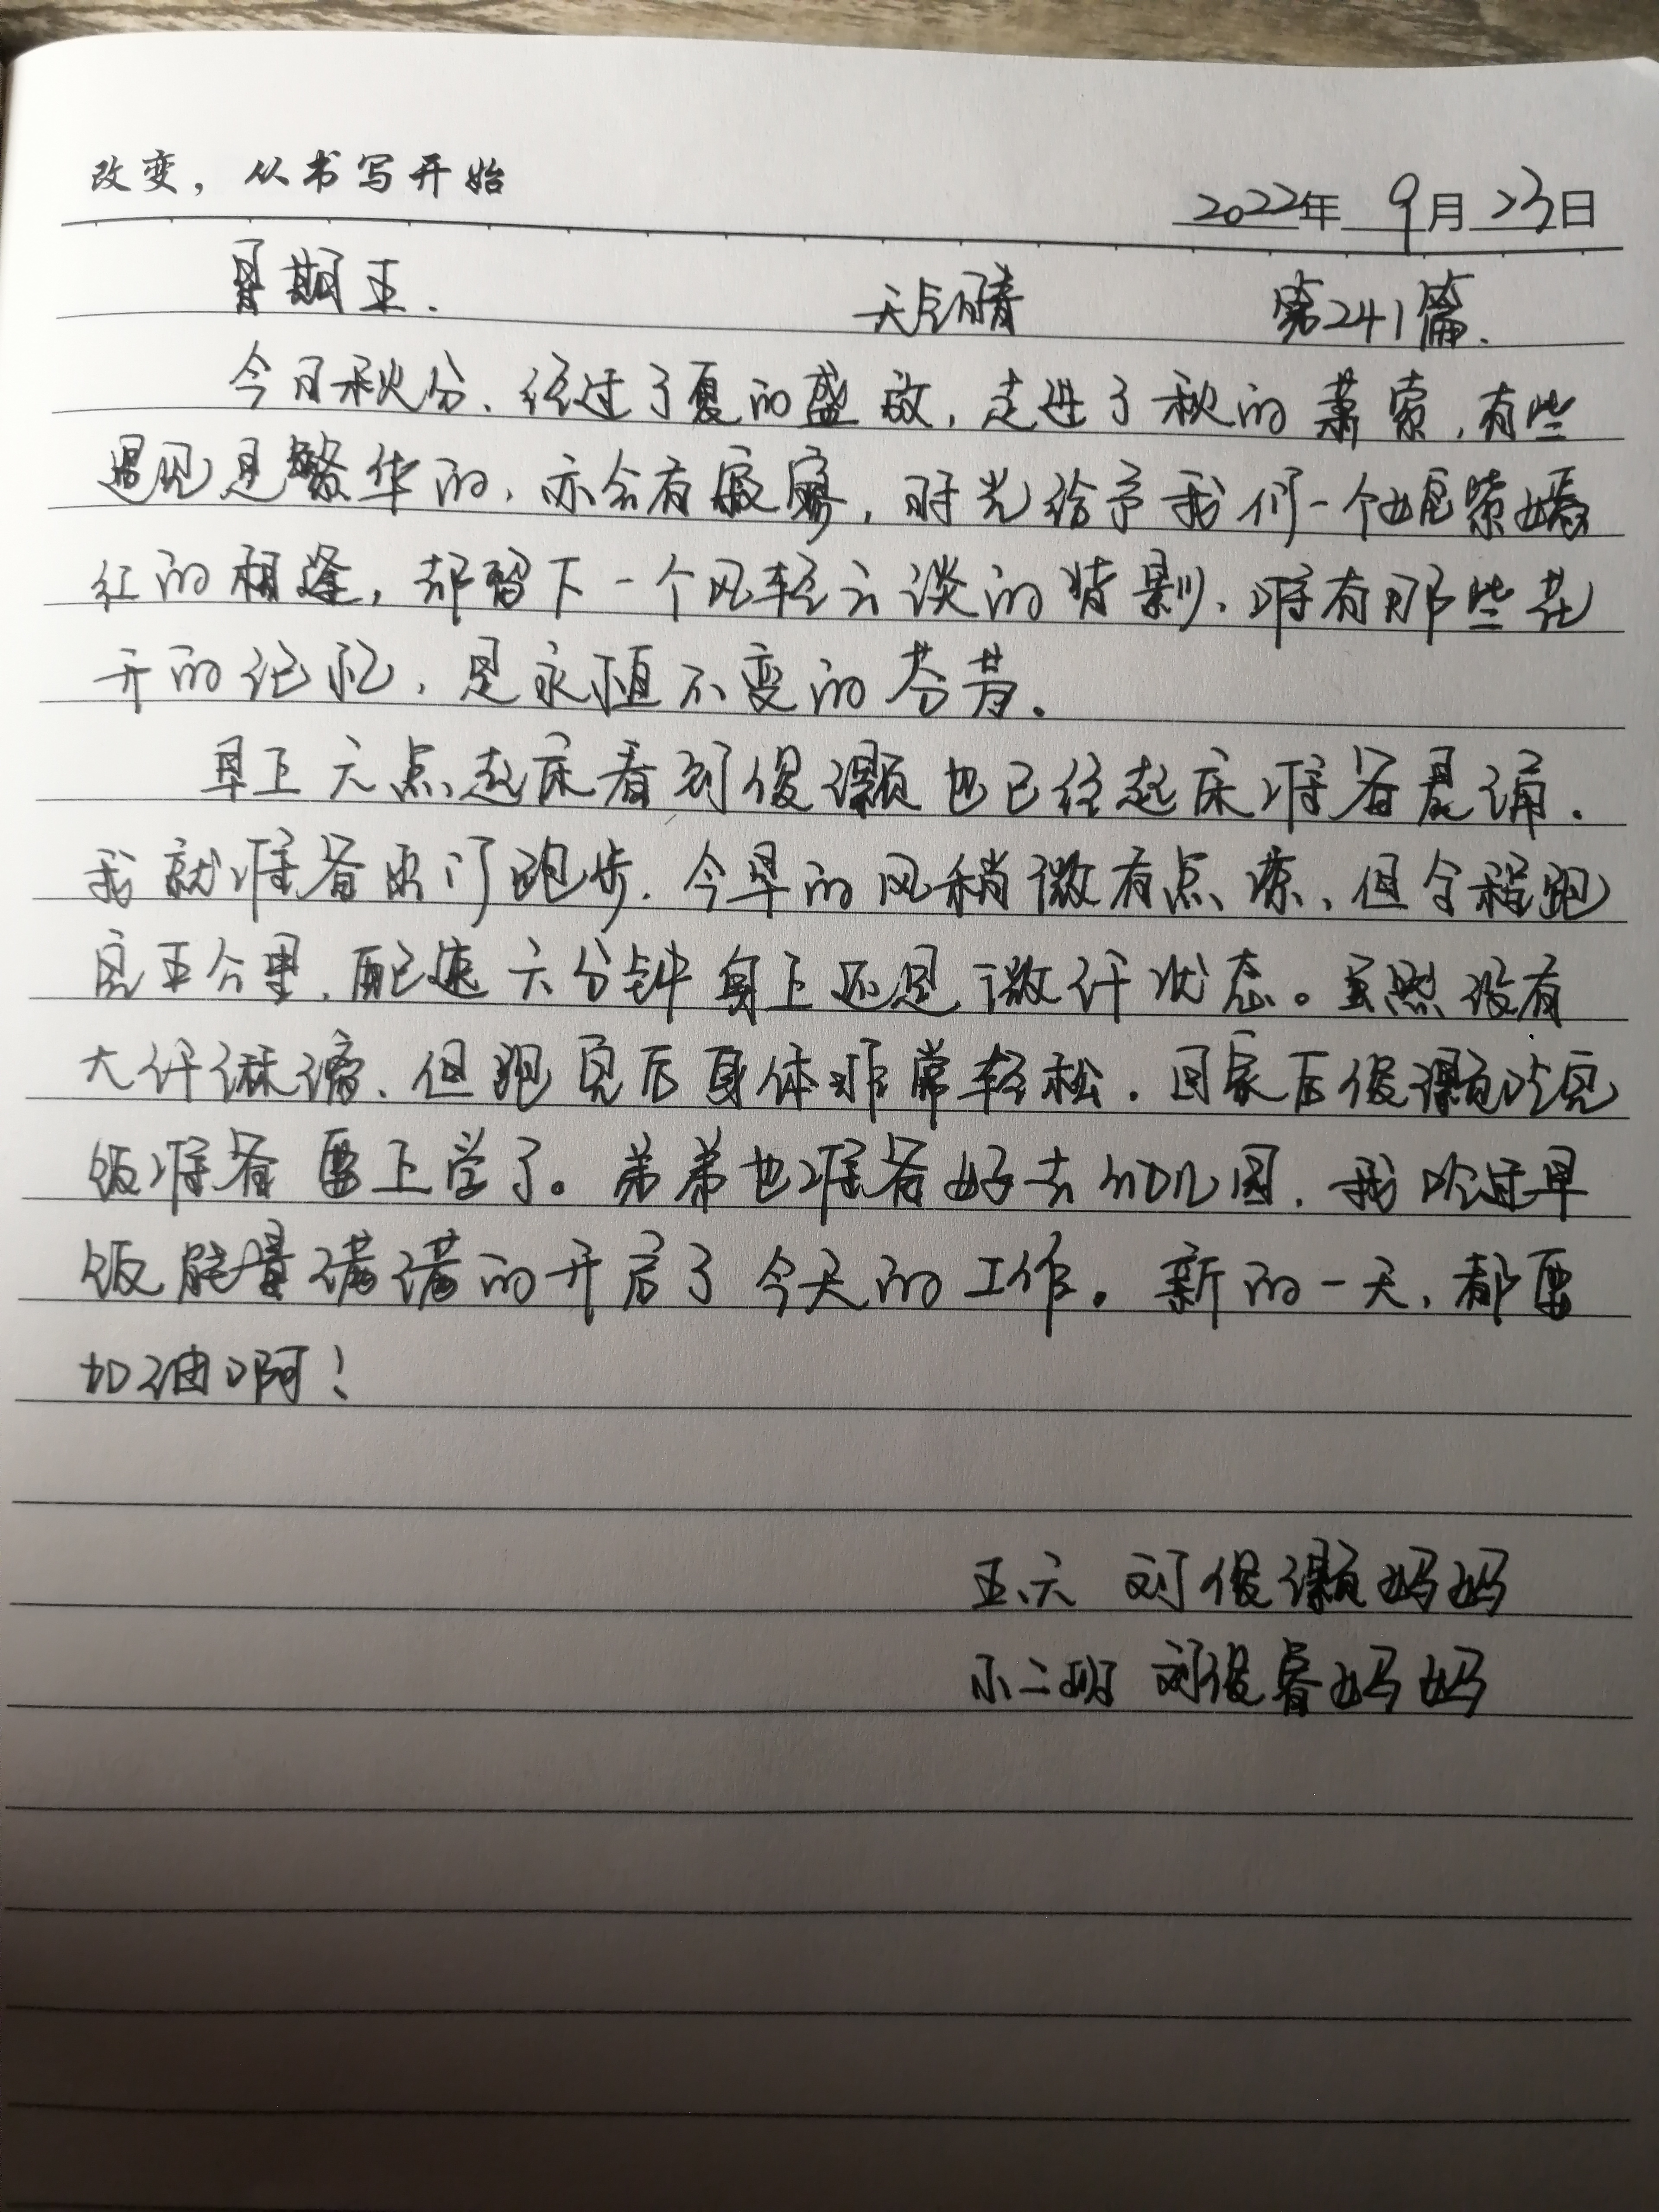 改变，从书写开始
2022年 9月 23日
星期五. 天气晴 第241篇.
今日秋分、经过了夏的盛放，走进了秋的萧索，有些
遇见是繁华的，亦会有寂寥，时光给予我们一个姹紫嫣
红的相逢，却留下一个风轻云淡的背影、唯有那些花
开的记忆，是永恒不变的芬芳。
早上六点起床看刘俊灏也已经起床准备晨诵.
我就准备出门跑步.今早的风稍微有点凉、但全程跑
完五公里、配速六分钟身上还是微汗状态。虽然没有
大汗淋漓、但跑完后身体非常轻松.回家后俊灏吃完
饭准备要上学了。弟弟也准备好去幼儿园，我吃过早
饭能量满满的开启了今天的工作。新的一天，都要
加油啊！
五、六 刘俊灏妈妈
小二班 刘俊睿妈妈